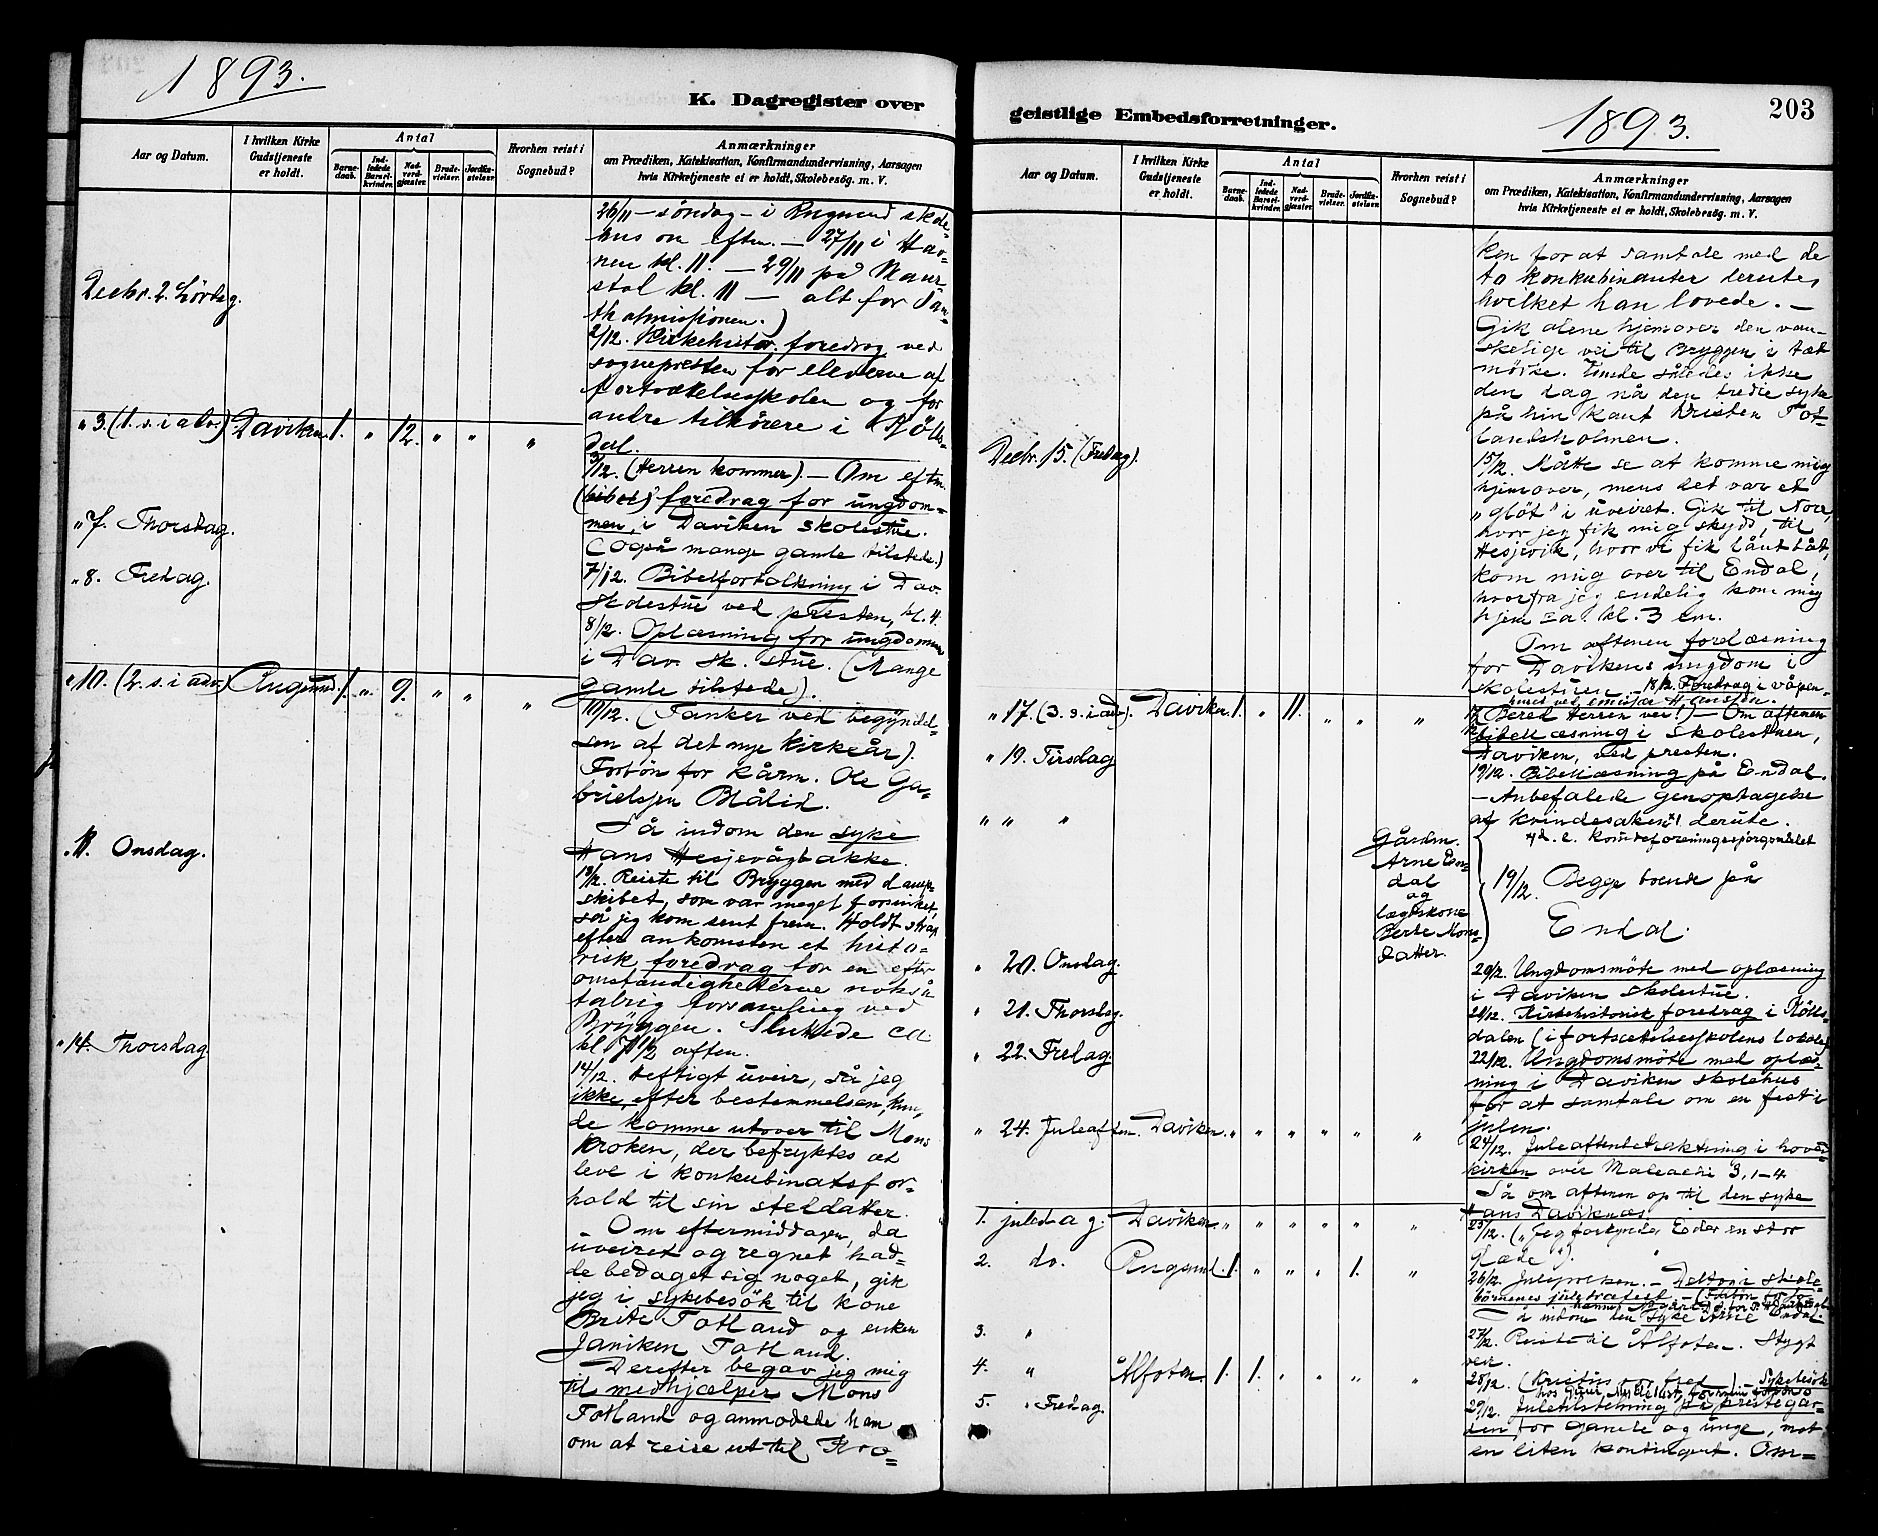 1893.
K. Dagregister over
Aar og Datum.
I hvilken Kirke Gudstjeneste er holdt.
Antal
Barnedaab.
Indledede Barselkvinder.
Nadverdgjæster.
Brudevielser.
Jordfæstelser.
Hvorhen reist i Sognebud?
Anmærkninger
om Prædiken, Katekisation, Konfirmandundervisning, Aarsagen
hvis Kirketjeneste ei er holdt, Skolebesøg. m. V.
26/11 – söndag – i Rugsund skole-
hus om eftm. – 27/11 i Hav-
nen kl. 11. – 29/11 på Maur-
stal kl. 11 – alt for San-
thalmissjonen.)
Decbr. 2. Lördag.
2/12. Kirkehistor. foredrag ved
sognepresten for eleverne af
fortsættelsesskolen og for
andre tilhörere i Kjölls-
dal.
" 3. (1. s. i adv.) Daviken. 1. " 12. " " "
3/12. (Herren kommer). – Om eftm.
(bibel) foredrag for ungdom-
men, i Daviken skolestue.
(også mange gamle tilstede.)
" 7. Thorsdag.
7/12. Bibelfortolkning i Dav.
skolestue ved presten, kl. 4.
" 8. Fredag.
8/12. Oplæsning for ungdommen
i Dav. sk. stue. (Mange
gamle tilstede).
" 10. (2. s. i adv.) Rugsund. 1. " 9. " " "
10/12. (Tanker ved begyndel-
sen af det nye kirkeår).
Forbön for kårm. Ole Ga-
brielsen Blålid.
Så indom den syke
Hans Hesjevågbakke.
Onsdag.
13/12. Reiste til Bryggen med damp-
skibet, som var meget forsinket,
så jeg kom sent frem. Holdt strax
efter ankomsten et histo-
risk foredrag for en efter
omstændighetterne nokså
talrig forsamling ved
Bryggen. Sluttede ca
kl. 7 1/2 aften.
" 14. Thorsdag.
14/12. Heftigt uveir, så jeg
ikke, efter bestemmelsen, kun-
de komme utover til Mons
Kroken, der befryktes at
leve i konkubinatsfor-
hold til sin steldatter.
– Om eftermiddagen, da
uveiret og regnet had-
de bedaget sig noget, gik
jeg i sykebesök til kone
Brite Totland og enken
Janiken Totland.
Derefter begav jeg mig
til medhjælper Mons
Totland og anmodede ham
om at reise ut til Kro-
geistlige Embedsforretninger.
1893.
203
Aar og Datum.
I hvilken Kirke Gudstjeneste er holdt.
Antal
Barnedaab.
Indledede Barselkvinder.
Nadverdgjæster.
Brudevielser.
Jordfæstelser.
Hvorhen reist i Sognebud?
Anmærkninger
om Prædiken, Katekisation, Konfirmandundervisning, Aarsagen
hvis Kirketjeneste ei er holdt, Skolebesøg. m. V.
ken for at samtale med de
to konkubinanter derute,
hvilket han lovede. –
Gik alene hjemover den van-
skelige vei til Bryggen i tæt
mörke. Kunde således ikke
den dag nå den tredie syke
på hin kant Kristen Tot-
landsholmen.
Decbr. 15. (Fredag).
15/12. Måtte se at komme mig
hjemover, mens det var et
"glöt" i uveiret. Gik til Nore,
hvor jeg fik mig skyds, til
Hesjevik, hvor vi fik lånt båt,
kom mig over til Endal,
hvorfra jeg endelig kom mig
hjem ca. kl. 3 em.
Om aftenen forelæsning
for Davikens ungdom i
skolestuen. – 18/12. Foredrag i våpen-
huset ved emissær
" 17. (3. s. i adv.). Daviken. 1. " 11. " " "
17/12 Bered Herren vei!) – Om aftenen
bibellæsning i skolestuen,
Daviken, ved presten.
" 19. Tirsdag
19/12. Bibellæsning på Endal.
– Anbefalede genoptagelse
af kvindesaken x) derute.
x) d. e. kvindeforeningsspörgsmålet
" " "
Gårdm.
Arne En-
dal
og
lægdskone
Berte Mons-
datter.
19/12. Begge boende på
Endal.
" 20. Onsdag.
20/12. Ungdomsmöte med oplæsning
i Daviken skolestue.
" 21. Thorsdag.
21/12. Kirkehistorisk foredrag i Kölls-
dalen (i fortsættelsesskolens lokale)
" 22. Fredag.
22/12. Ungdomsmöte med oplæs-
ning i Daviken skolehus
for at samtale om en fest i
julen.
" 24. Juleaften. Daviken. " " " " " "
24/12. Juleaftenbetraktning i hoved-
kirken over Maleachi 3, 1–4.
Så om aftenen op til den syke
Hans Daviknæs.
1. juledag. Daviken. " " " " " "
25/12. ("Jeg forkynder Eder en stor
glæde").
2. do. Rugsund. 1. " " " 1. "
26/12. Julepræken. – Deltog i skole-
börnenes juletræfest. –
Så indom den syke Arne Endal.
3. "
27/12. Reiste til Ålfoten. Stygt
veir.
4. " Ålfoten. 1. 1. " " " "
28/12. (Kristus vor fred). Sykebesök
5. " Fredag.
29/12. Juletilstelning på prestegår-
den for gamle og unge, mot
en liten kontingent. Om-